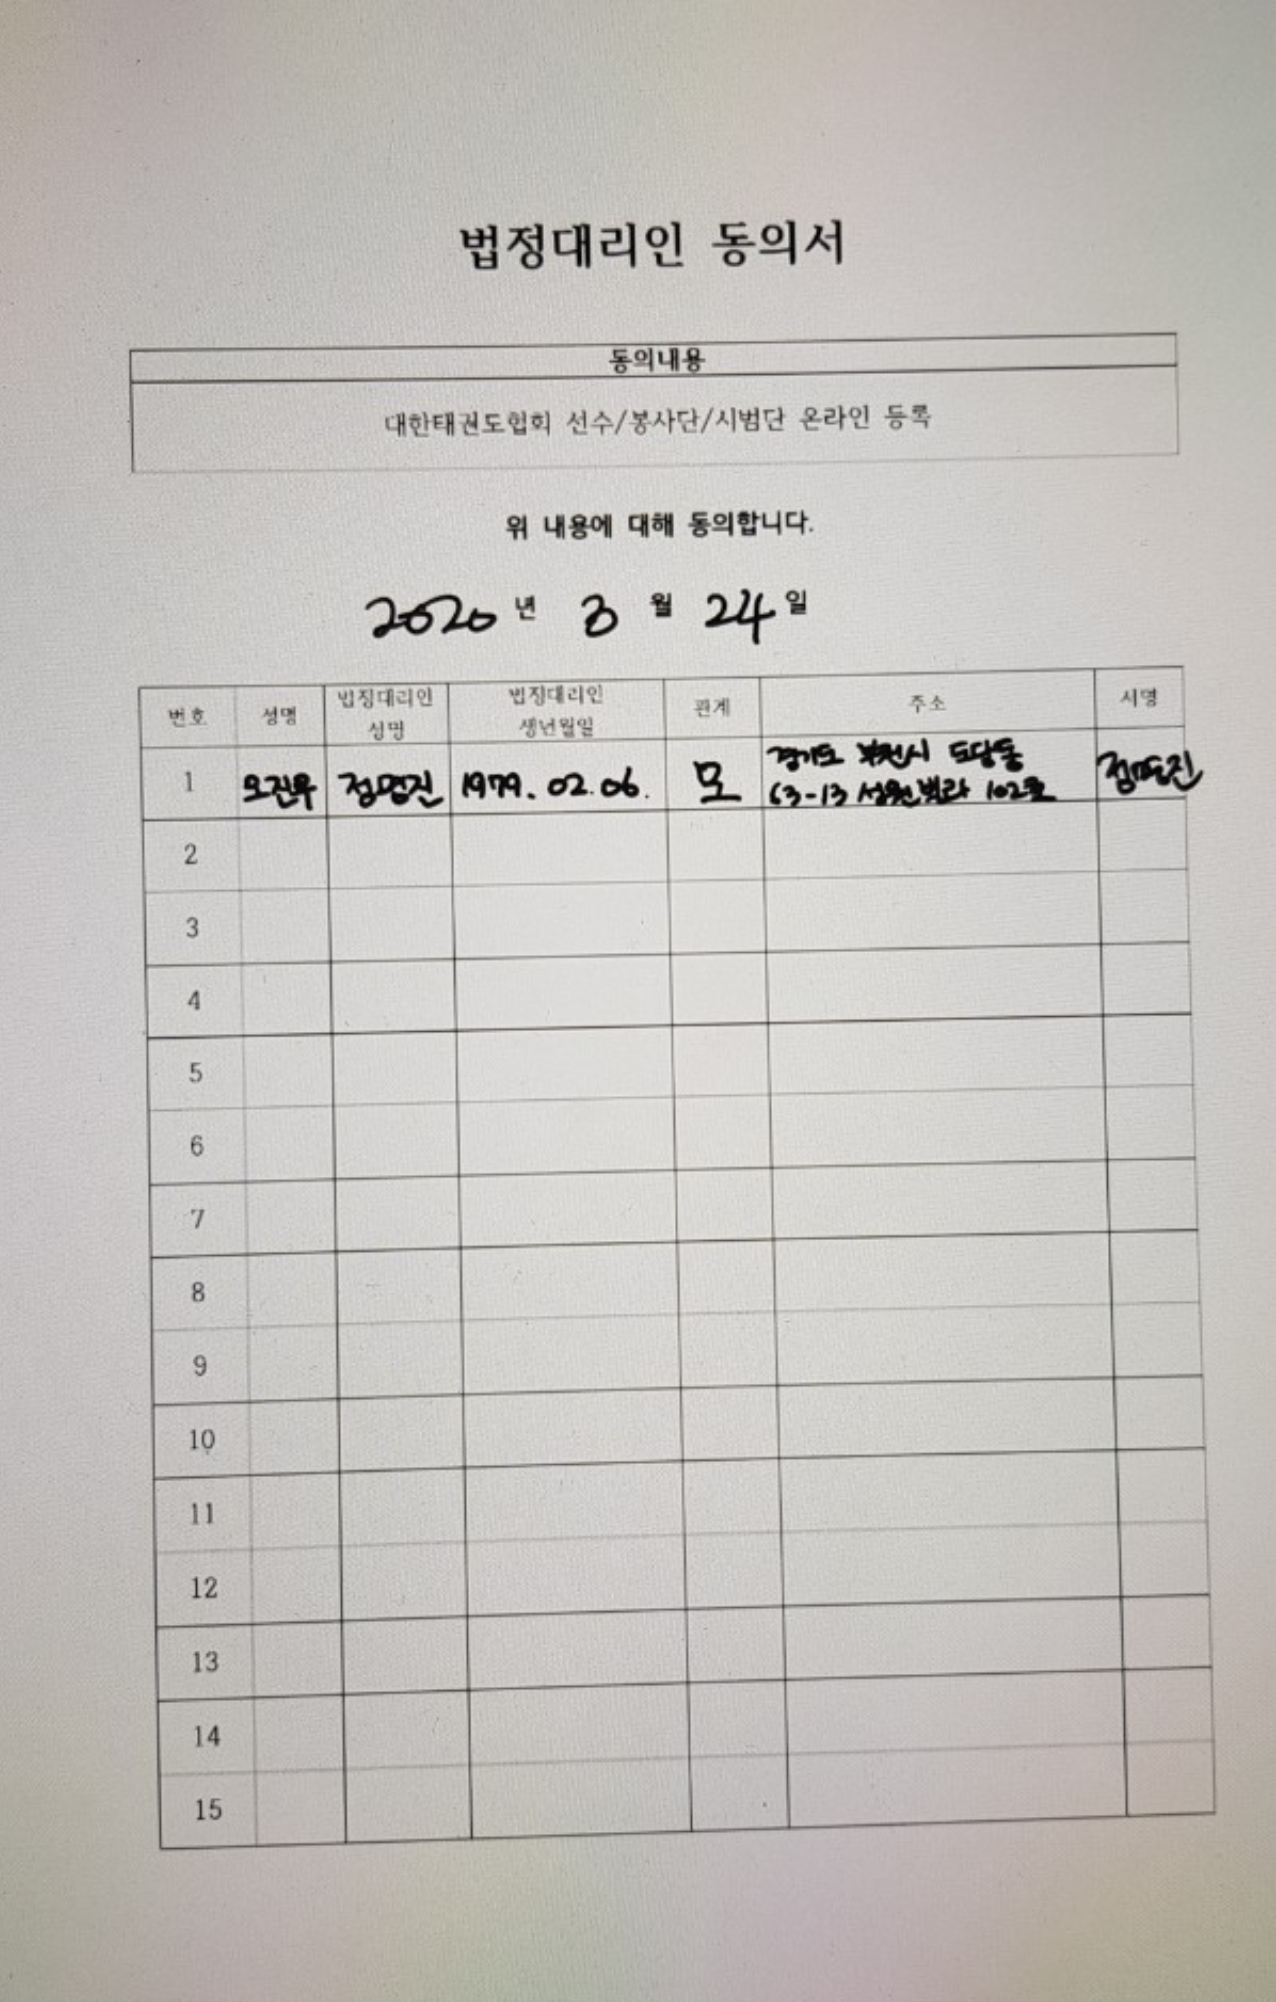 법정대리인 동의서
동의내용
대한태권도협회 선수/봉사단/시범단 온라인 등록
위 내용에 대해 동의합니다.
2020 년 3 월 24 일
번호 성명 법정대리인 성명 법정대리인 생년월일 관계 주소 서명
1 오진우 정명진 1979. 02. 06. 모 경기도 부천시 도당동
63-13 성원빌라 102호 정명진
2
3
4
5
6
7
8
9
10
11
12
13
14
15